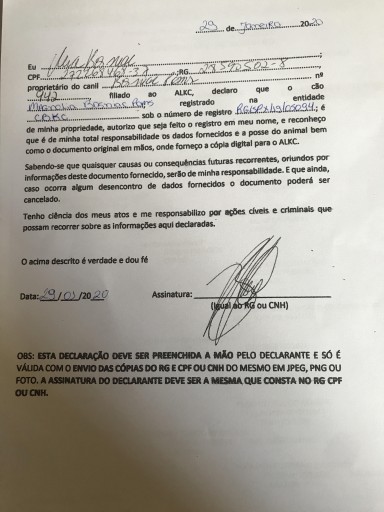 29 de Janeiro 2020
Eu
CPF RG 28592502-8
proprietário do canil nº
942 filiado ao ALKC, declaro que o cão
registrado na entidade
CBKC sob o número de registro é
de minha propriedade, autorizo que seja feito o registro em meu nome, e reconheço
que é de minha total responsabilidade os dados fornecidos e a posse do animal bem
como o documento original em mãos, onde forneço a cópia digital para o ALKC.
Sabendo-se que quaisquer causas ou consequências futuras recorrentes, oriundos por
informações deste documento fornecido, serão de minha responsabilidade. E que ainda,
caso ocorra algum desencontro de dados fornecidos o documento poderá ser
cancelado.
Tenho ciência dos meus atos e me responsabilizo por ações cíveis e criminais que
possam recorrer sobre as informações aqui declaradas.
O acima descrito é verdade e dou fé
Data: 29/01/2020 Assinatura:
(Igual ao RG ou CNH)
OBS: ESTA DECLARAÇÃO DEVE SER PREENCHIDA A MÃO PELO DECLARANTE E SÓ É
VÁLIDA COM O ENVIO DAS CÓPIAS DO RG E CPF OU CNH DO MESMO EM JPEG, PNG OU
FOTO. A ASSINATURA DO DECLARANTE DEVE SER A MESMA QUE CONSTA NO RG CPF
OU CNH.